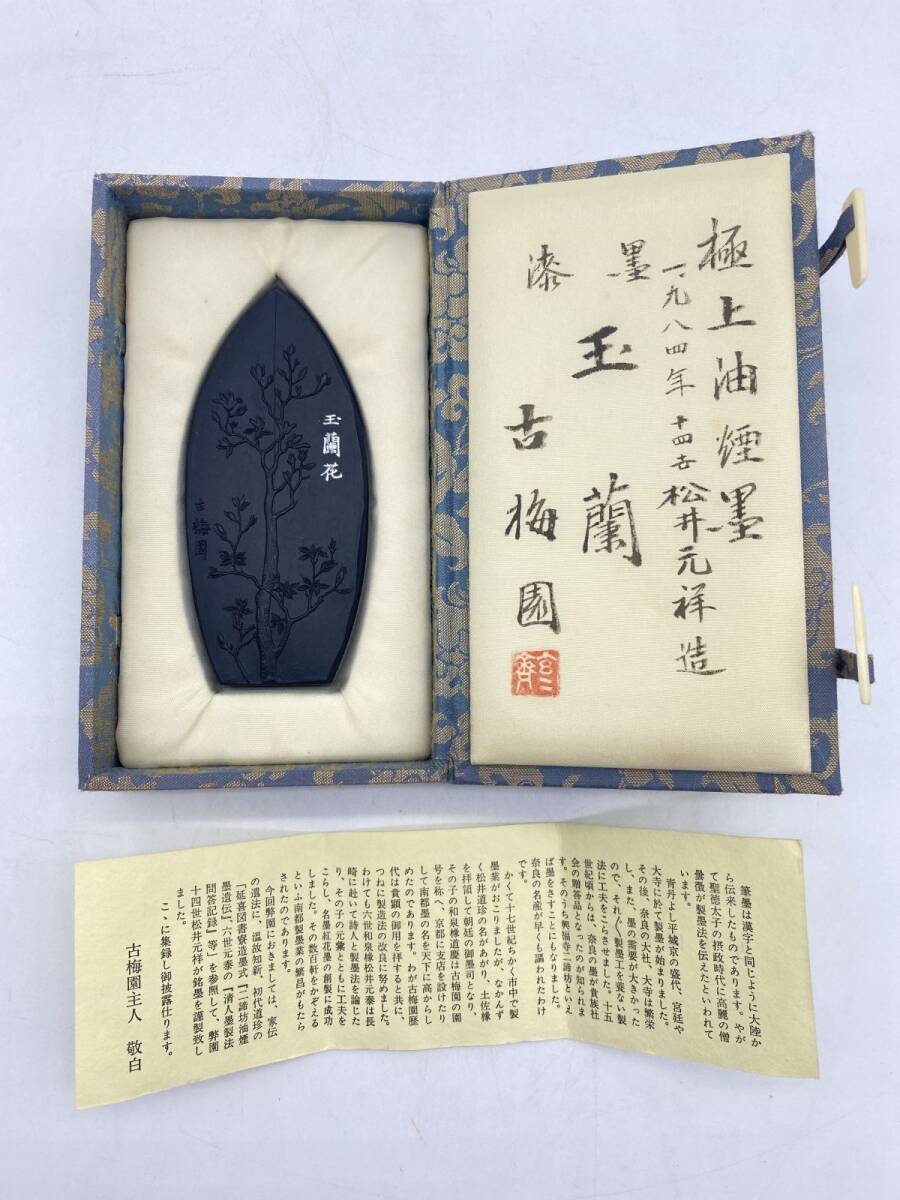 極上油煙墨
一九八四年 十四世 松井元祥造
墨 玉蘭
漆 古梅園
玉蘭花
古梅園
筆墨は漢字と同じように大陸か
ら伝来したものであります。やが
て聖徳太子の摂政時代に高麗の僧
曇徴が製墨法を伝えたといわれて
います。
青丹よし平城京の盛代、宮廷や
大寺に於て製墨が始まりました。
その後、奈良の大社、大寺は繁栄
し、また、墨の需要が大きかった
ので、それ〴〵製墨工を養ない製
法に工夫をこらさせました。十五
世紀頃からは、奈良の墨が貴族社
会の贈答品となったのが知られま
す。そのうち興福寺二諦坊といえ
ば墨をさすことにもなりました。
奈良の名産が早くも謳われたわけ
です。
かくて十七世紀ちかく市中で製
墨業がおこりましたが、なかんず
く松井道珍の名があがり、土佐掾
を拝領して朝廷の御墨司となり、
その子の和泉掾道慶は古梅園の園
号を称へ、京都に支店を設けたり
して南都墨の名を天下に高からし
めたのであります。わが古梅園歴
代は貴顕の御用を拝すると共に、
つねに製造法の改良に努めました。
わけても六世和泉掾松井元泰は長
崎に赴いて詩人と製墨法を論じた
り、その子の元彙とともに工夫を
こらし、名墨紅花墨の創製に成功
しました。その数百軒をかぞえる
といふ南都製墨業の繁昌がもたら
されたのであります。
今回弊園におきましては、家伝
の遺法に、温故知新、初代道珍の
『延喜図書寮造墨式』『二諦坊油煙
墨遺伝』、六世元泰の『清人墨製法
問答記録』等」を参照して、弊園
十四世松井元祥が銘墨を謹製致し
ました。
こゝに集録し御披露仕ります。
古梅園主人 敬白